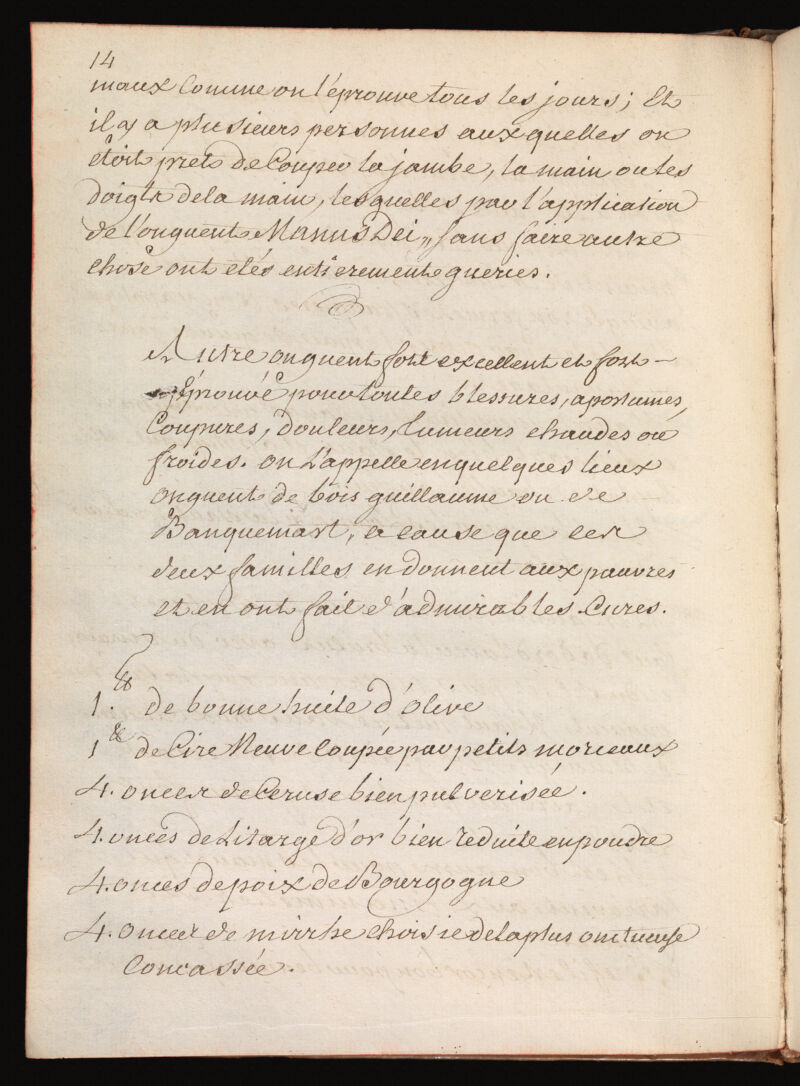 14
maux Comme on l'éprouve tous les jours; Et
il y a plusieurs personnes auxquelles on
étoit prets de Couper la jambe, la main ou les
doigts de la main, lesquelles par l'application
de l'onguent Manus Dei,, sans faire autre
chose ont etés entierement gueries.
Autre onguent fort excellent et fort
éprouvé pour toutes blessures, apostumes,
Coupures, douleurs, tumeurs chaudes ou
froides. on L'appelle en quelques lieux
onguent de bois guillaume ou de
Banquemart, a cause que ces
deux familles en donnent aux pauvres
et en ont fait d'admirables Cures.
1. ℔ de bonne huile d'olive
1 ℔ de Cire Neuve Coupée par petits morceaux
4. onces de Ceruse bien pulverisée.
4. onces de Litarge d'or bien reduite en poudre
4. onces de poix de Bourgogne
4. onces de mirrhe choisie de la plus onctueuse
Concassée.